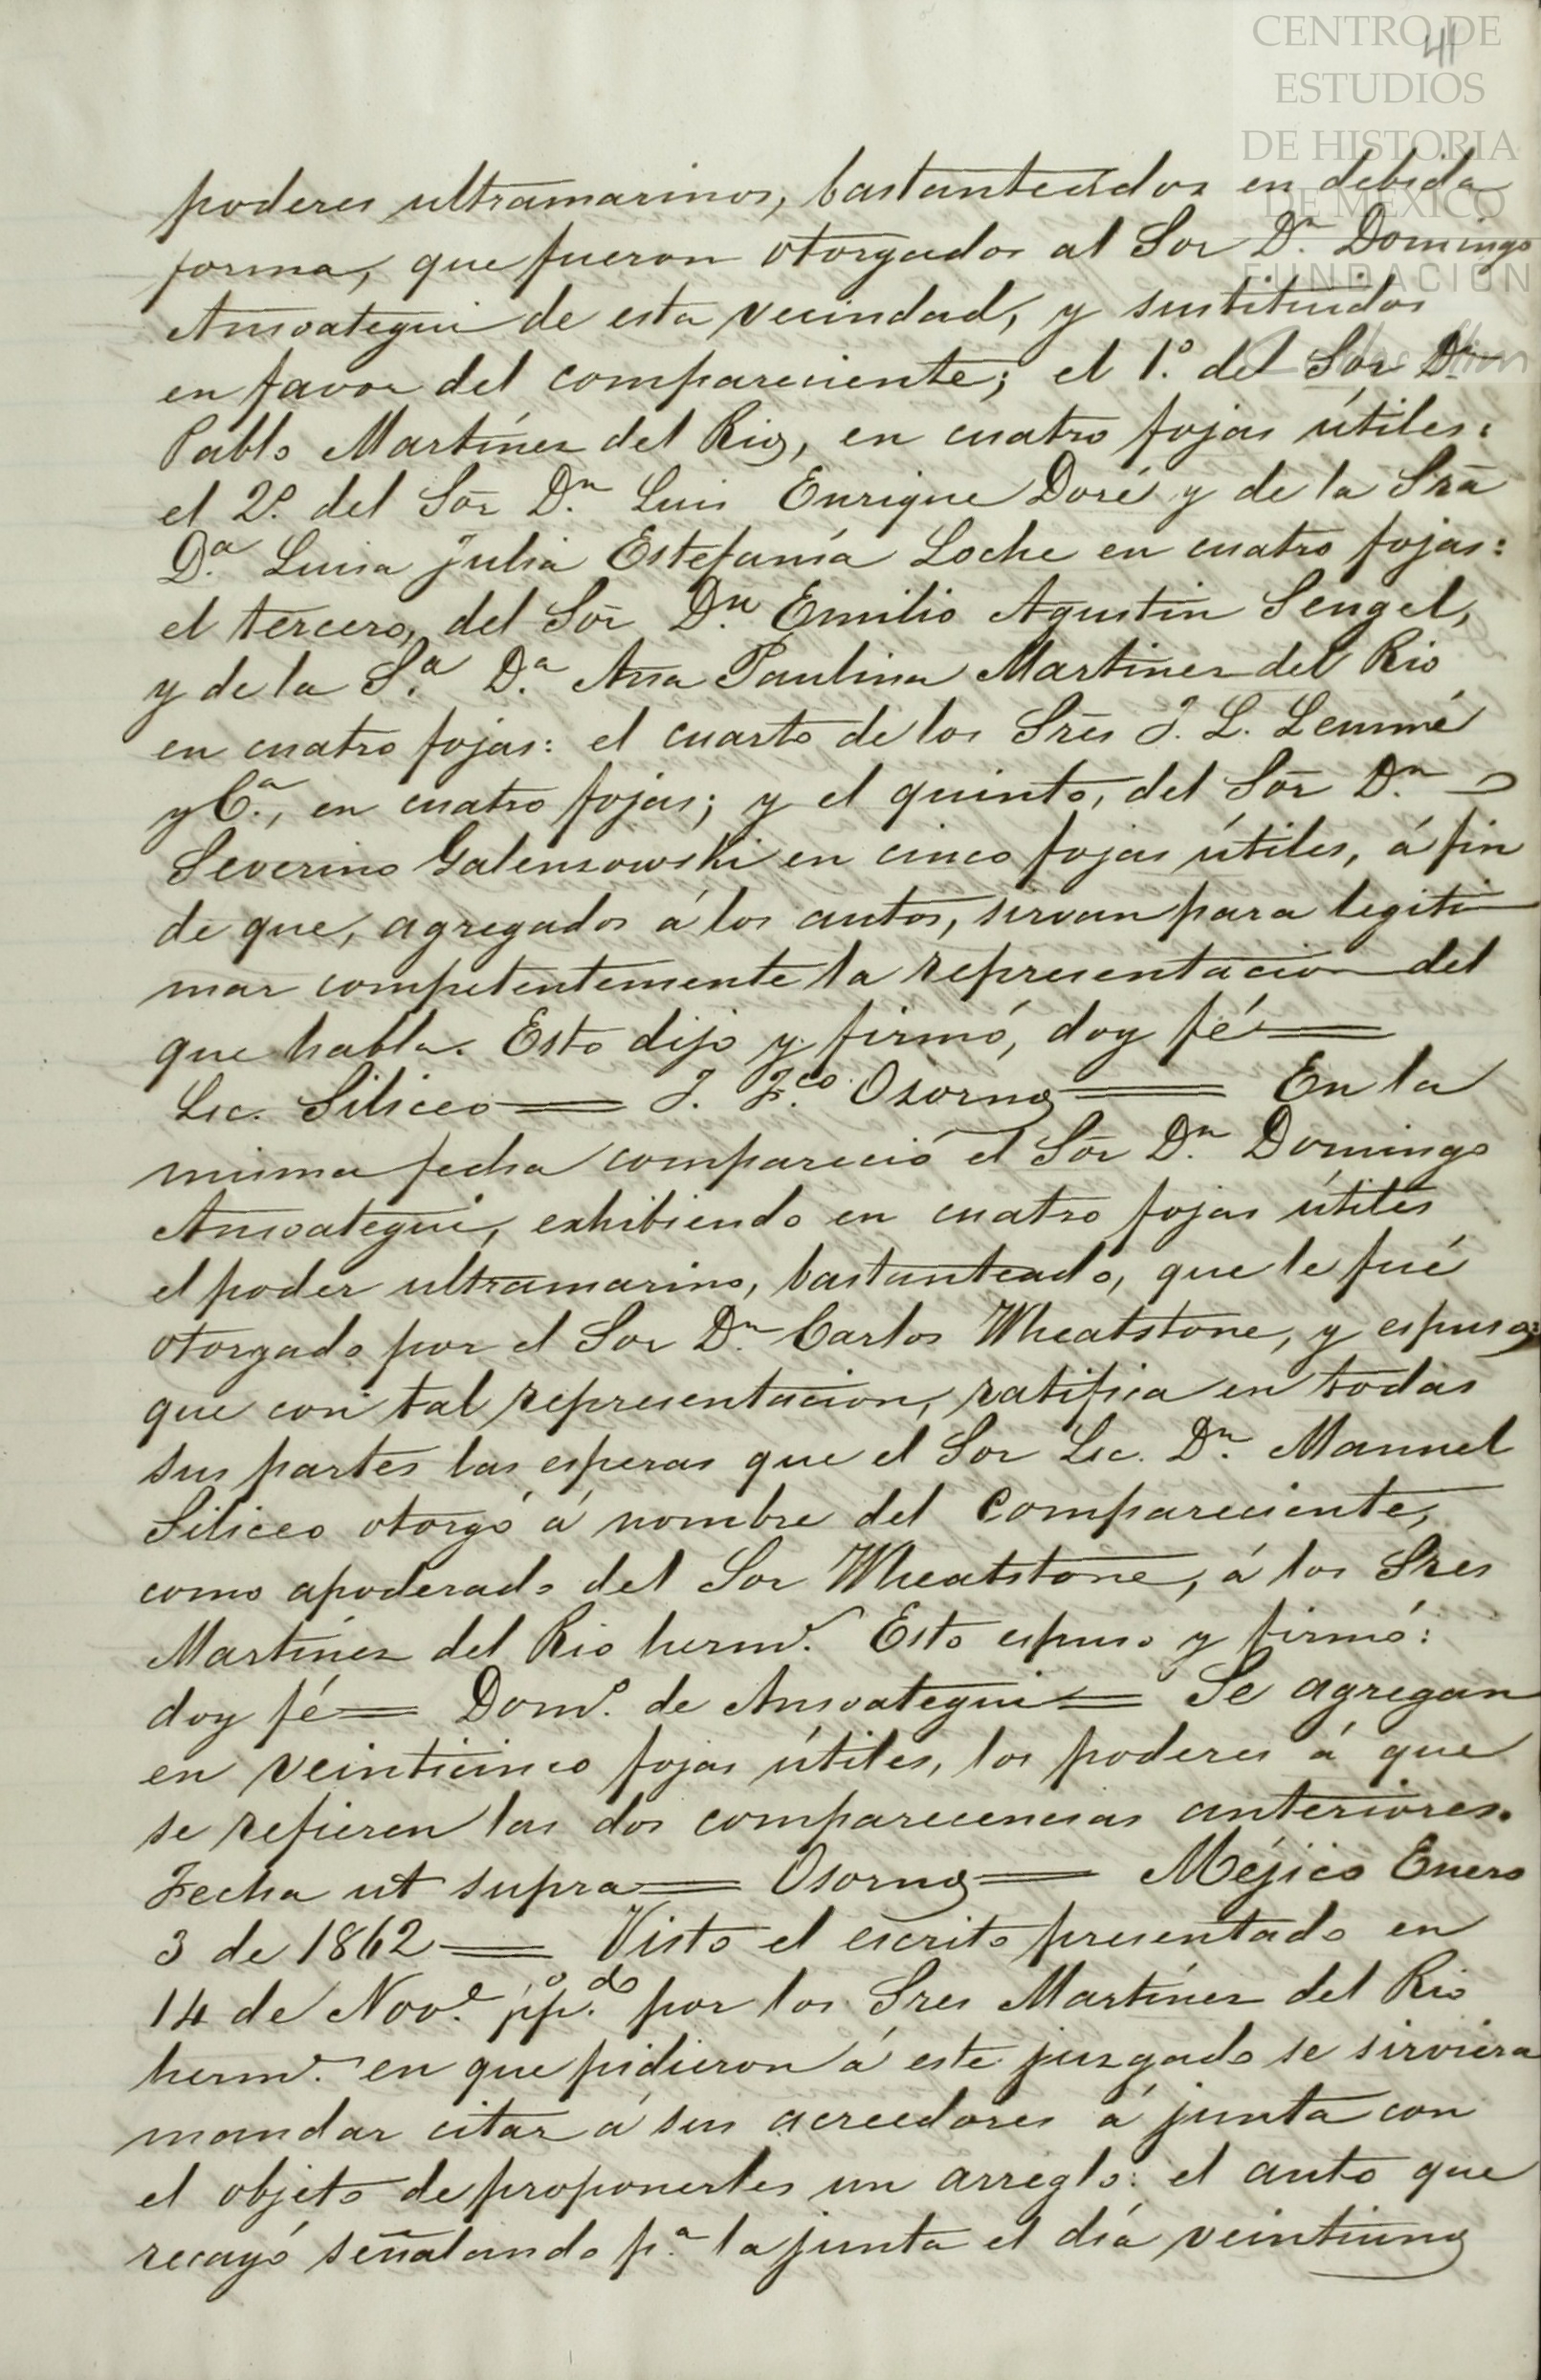 CENTRO DE
ESTUDIOS
DE HISTORIA
DE MÉXICO
FUNDACIÓN
41
poderes ultramarinos, bastanteados en debida
forma, que fueron otorgados al Sor Dn. Domingo
Ansoategui de esta vecindad, y sustituidos
en favor del compareciente; el 1º. del Sor Dn.
Pablo Martínez del Rio, en cuatro fojas útiles:
el 2º. del Sōr Dn. Luis Enrique Doré y de la Srā
Dª. Luisa Julia Estefanía Loche en cuatro fojas:
el tercero, del Sōr Dn. Emilio Agustin Sengel,
y de la Sª. Dª. Ana Paulina Martinez del Rio
en cuatro fojas: el cuarto de los Srēs J. L. Lemmé
y Cª., en cuatro fojas; y el quinto, del Sōr Dn.
Severino Galenzowski en cinco fojas útiles, á fin
de que, agregados á los autos, sirvan para legiti-
mar competentemente la representacion del
que habla. Esto dijo y firmó, doy fé=
Lic. Siliceo= J. Fco. Osorno= En la
misma fecha compareció el Sōr Dn. Domingo
Ansoategui, exhibiendo en cuatro fojas útiles
el poder ultramarino, bastanteado, que le fué
otorgado por el Sor Dn. Carlos Wheatstone, y espuso:
que con tal representacion, ratifica en todas
sus partes las esperas que el Sor Lic. Dn. Manuel
Siliceo otorgó á nombre del compareciente,
como apoderado del Sor Wheatstone, á los Sres
Martínez del Rio hermˢ. Esto espuso y firmó:
doy fé= Domº. de Ansoategui= Se agregan
en veinticinco fojas útiles, los poderes á que
se refieren las dos comparecencias anteriores.
Fecha ut supra= Osorno= Méjico Enero
3 de 1862= Visto el escrito presentado en
14 de Nove. pº.pdo. por los Sres Martínez del Rio
hermˢ. en que pidieron á este juzgado se sirviera
mandar citar á sus acreedores á junta con
el objeto de proponerles un arreglo: el auto que
recayó señalando pª. la junta el día veintiuno